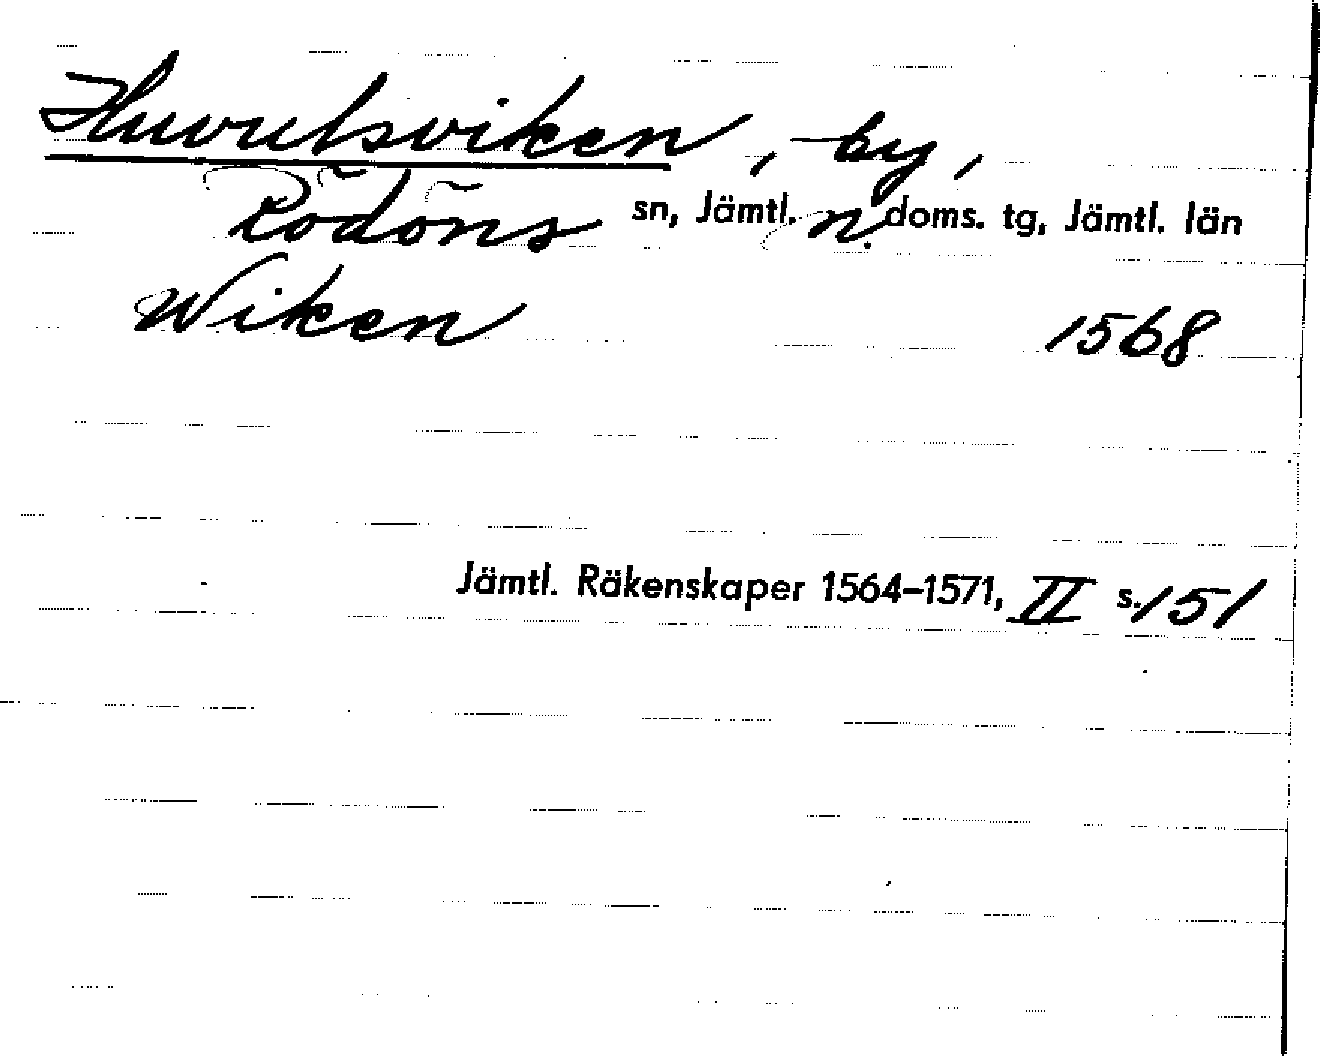 Huvulsviken, by,
Rödöns sn, Jämtl. n. doms. tg, Jämtl. län
Wiken 1568
Jämtl. Räkenskaper 1564–1571, II s. 151